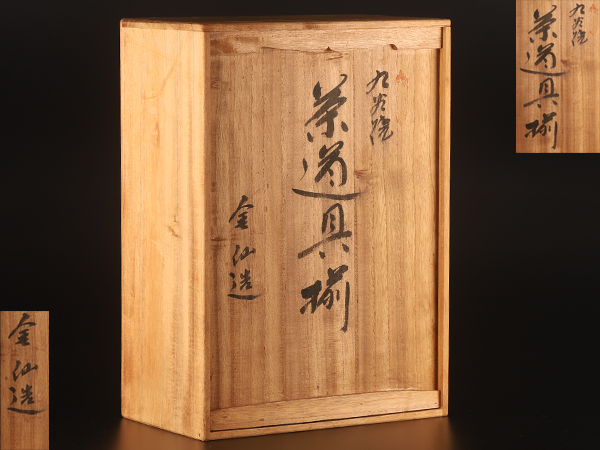 九谷焼
茶道具揃
金仙造
九谷焼
茶道具揃
金仙造